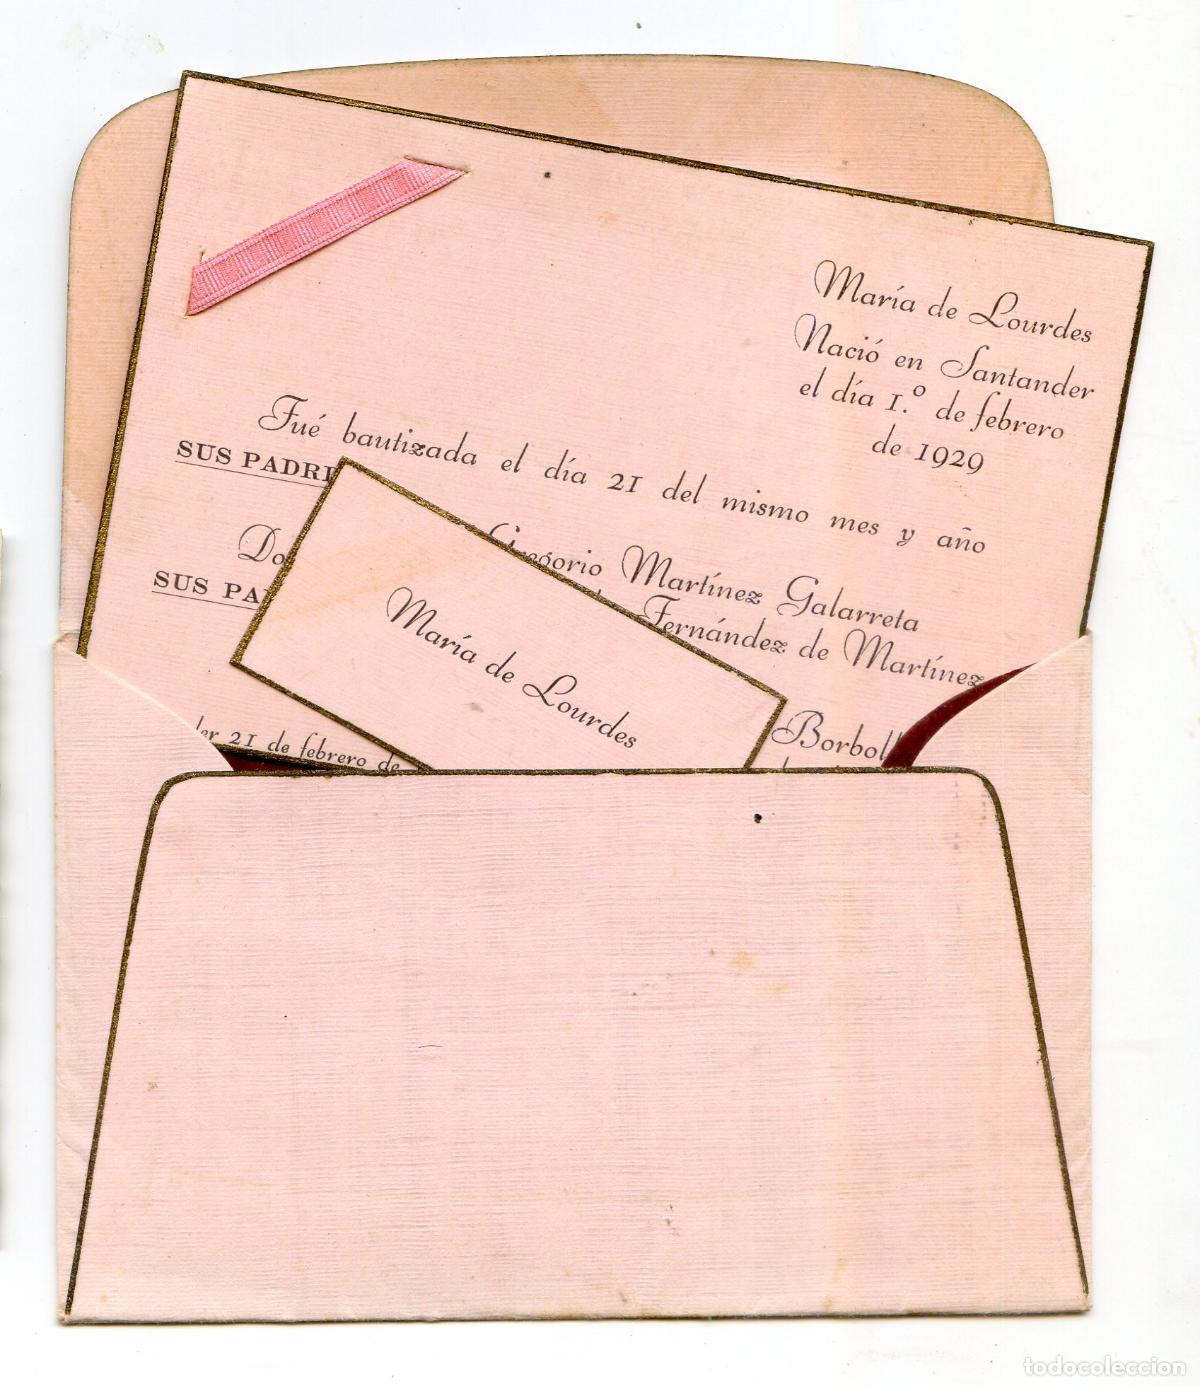 María de Lourdes
Nació en Santander
el día 1.º de febrero
de 1929
Fué bautizada el día 21 del mismo mes y año
SUS PADRI
Gregorio Martínez Galarreta
Fernández de Martínez
SUS PA
Borboll
21 de febrero de
María de Lourdes
todocoleccion